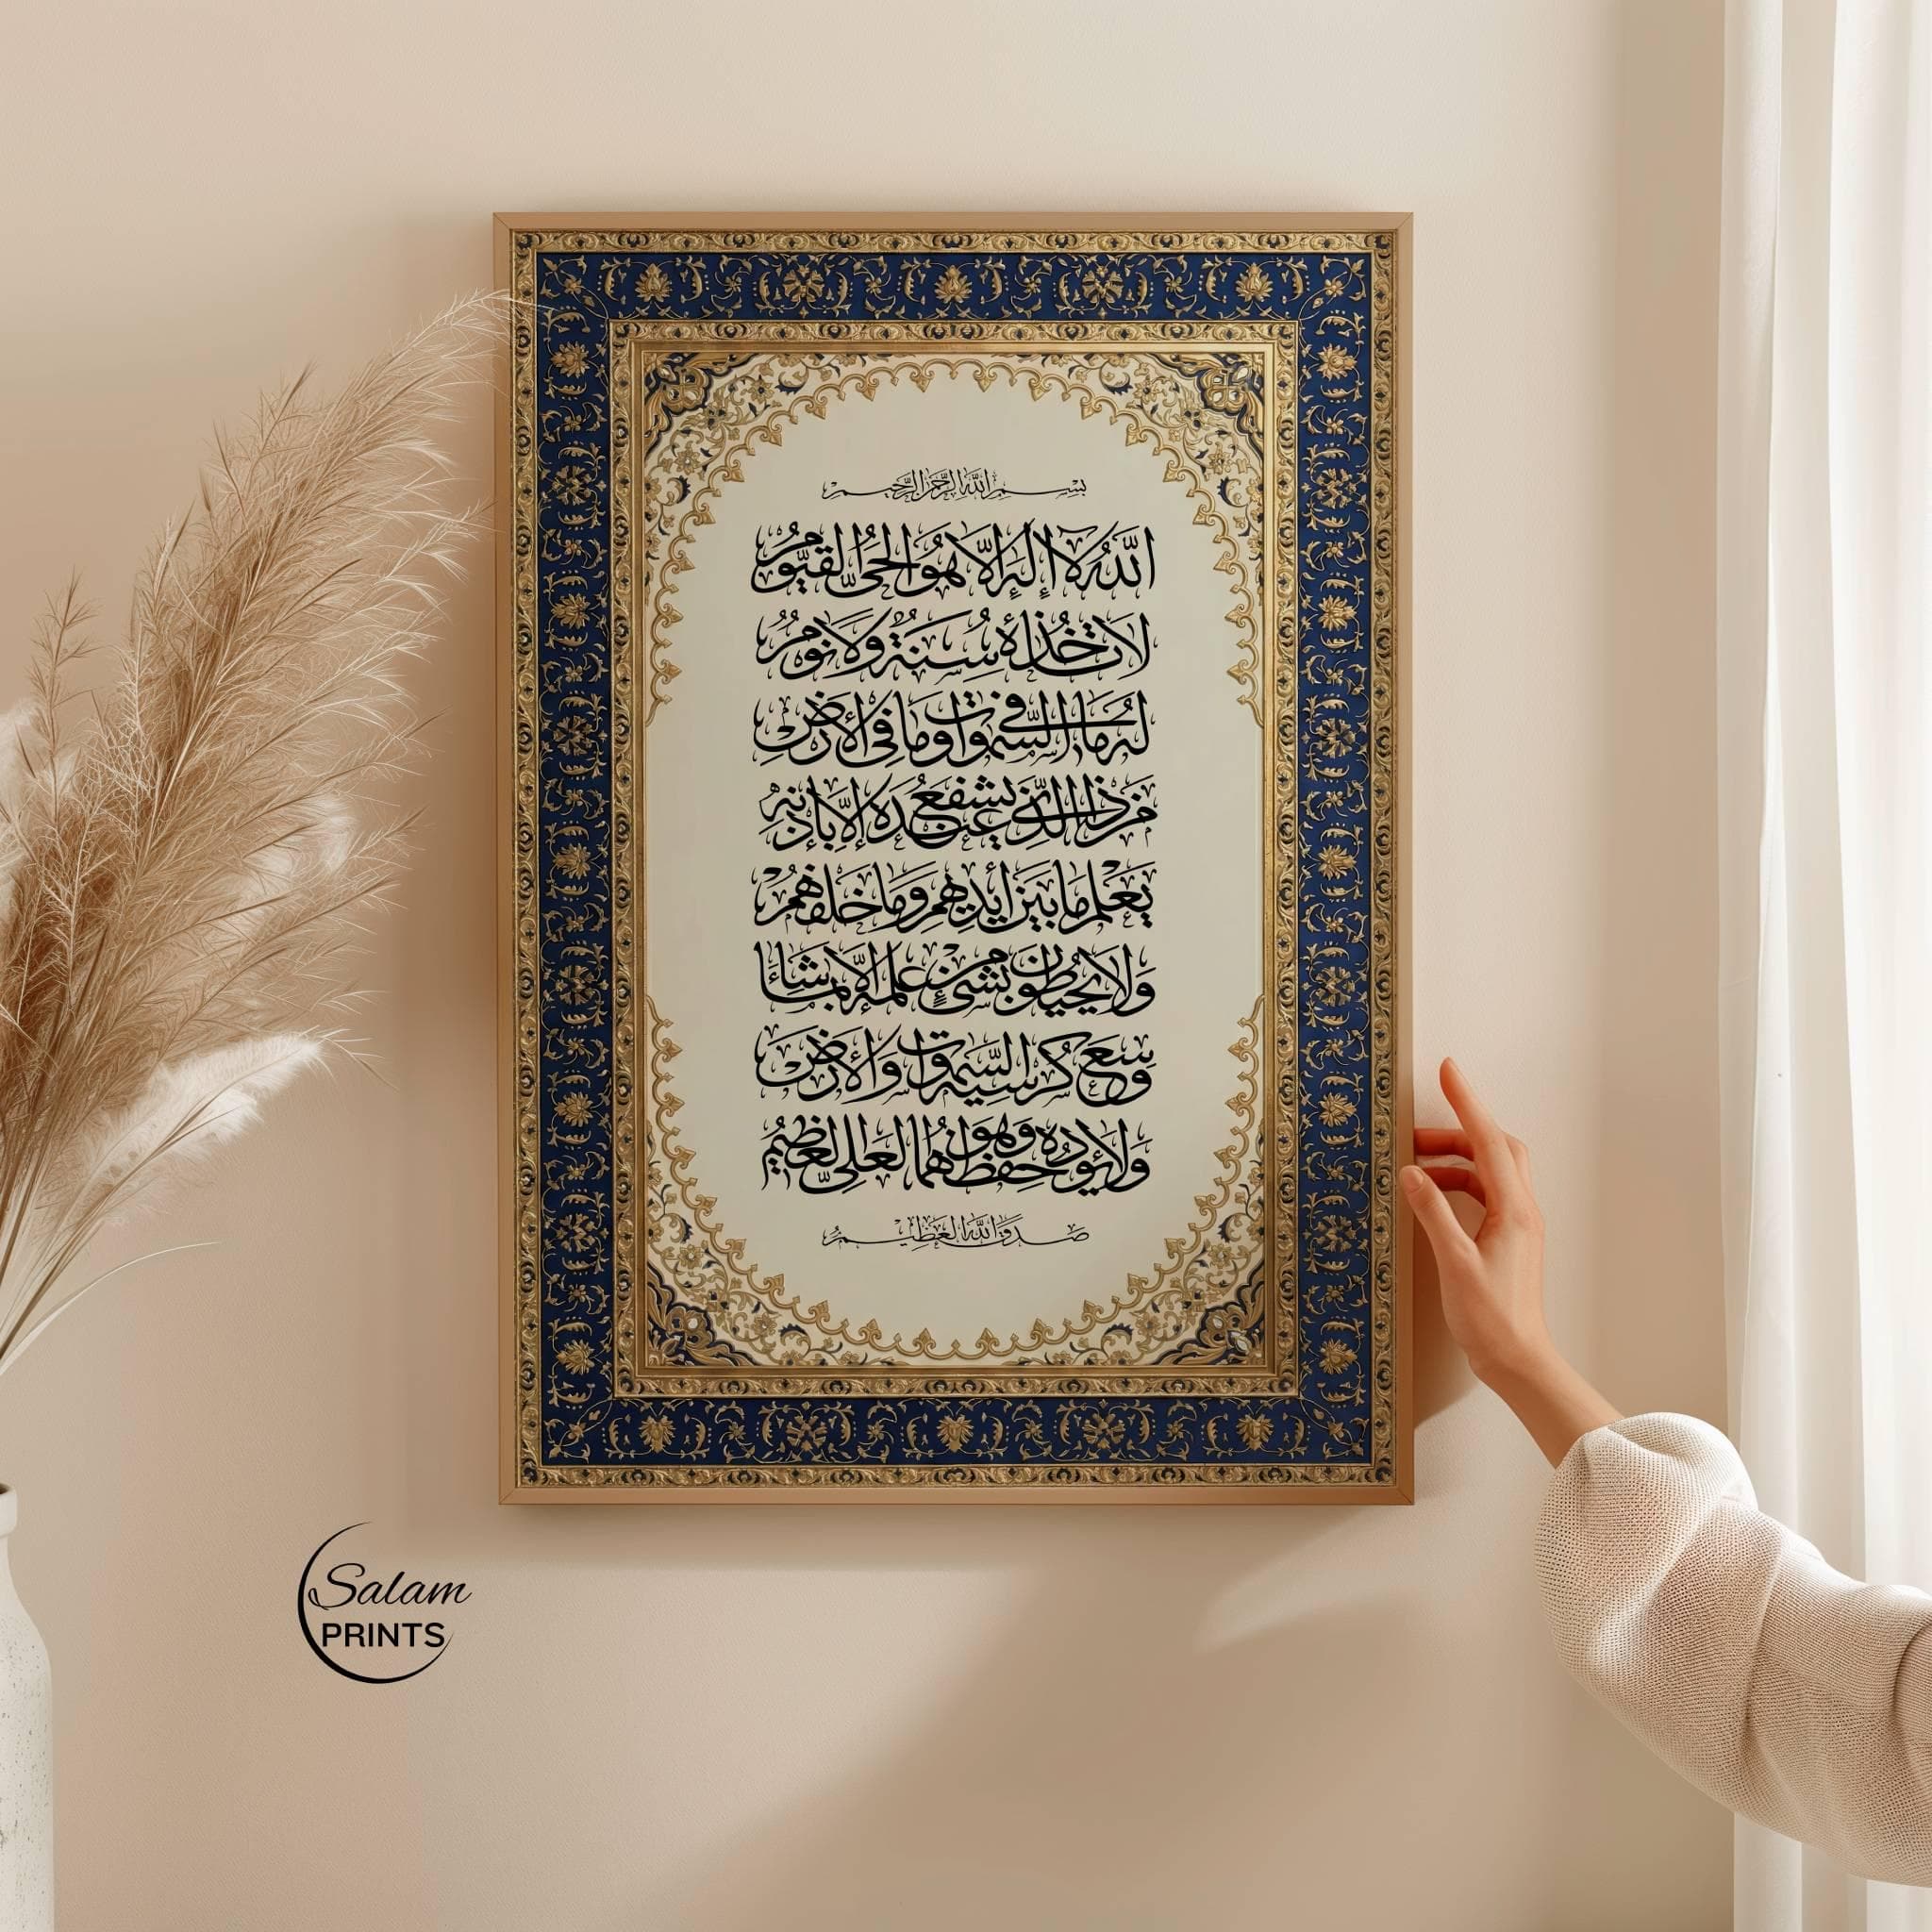 بِسْمِ اللَّهِ الرَّحْمَنِ الرَّحِيمِ
اللَّهُ لَا إِلَهَ إِلَّا هُوَ الْحَيُّ الْقَيُّومُ
لَا تَأْخُذُهُ سِنَةٌ وَلَا نَوْمٌ
لَهُ مَا فِي السَّمَوَاتِ وَمَا فِي الْأَرْضِ
مَنْ ذَا الَّذِي يَشْفَعُ عِنْدَهُ إِلَّا بِإِذْنِهِ
يَعْلَمُ مَا بَيْنَ أَيْدِيهِمْ وَمَا خَلْفَهُمْ
وَلَا يُحِيطُونَ بِشَيْءٍ مِنْ عِلْمِهِ إِلَّا بِمَا شَاءَ
وَسِعَ كُرْسِيُّهُ السَّمَوَاتِ وَالْأَرْضَ
وَلَا يَئُودُهُ حِفْظُهُمَا وَهُوَ الْعَلِيُّ الْعَظِيمُ
صَدَقَ اللَّهُ الْعَظِيمُ
Salam
PRINTS